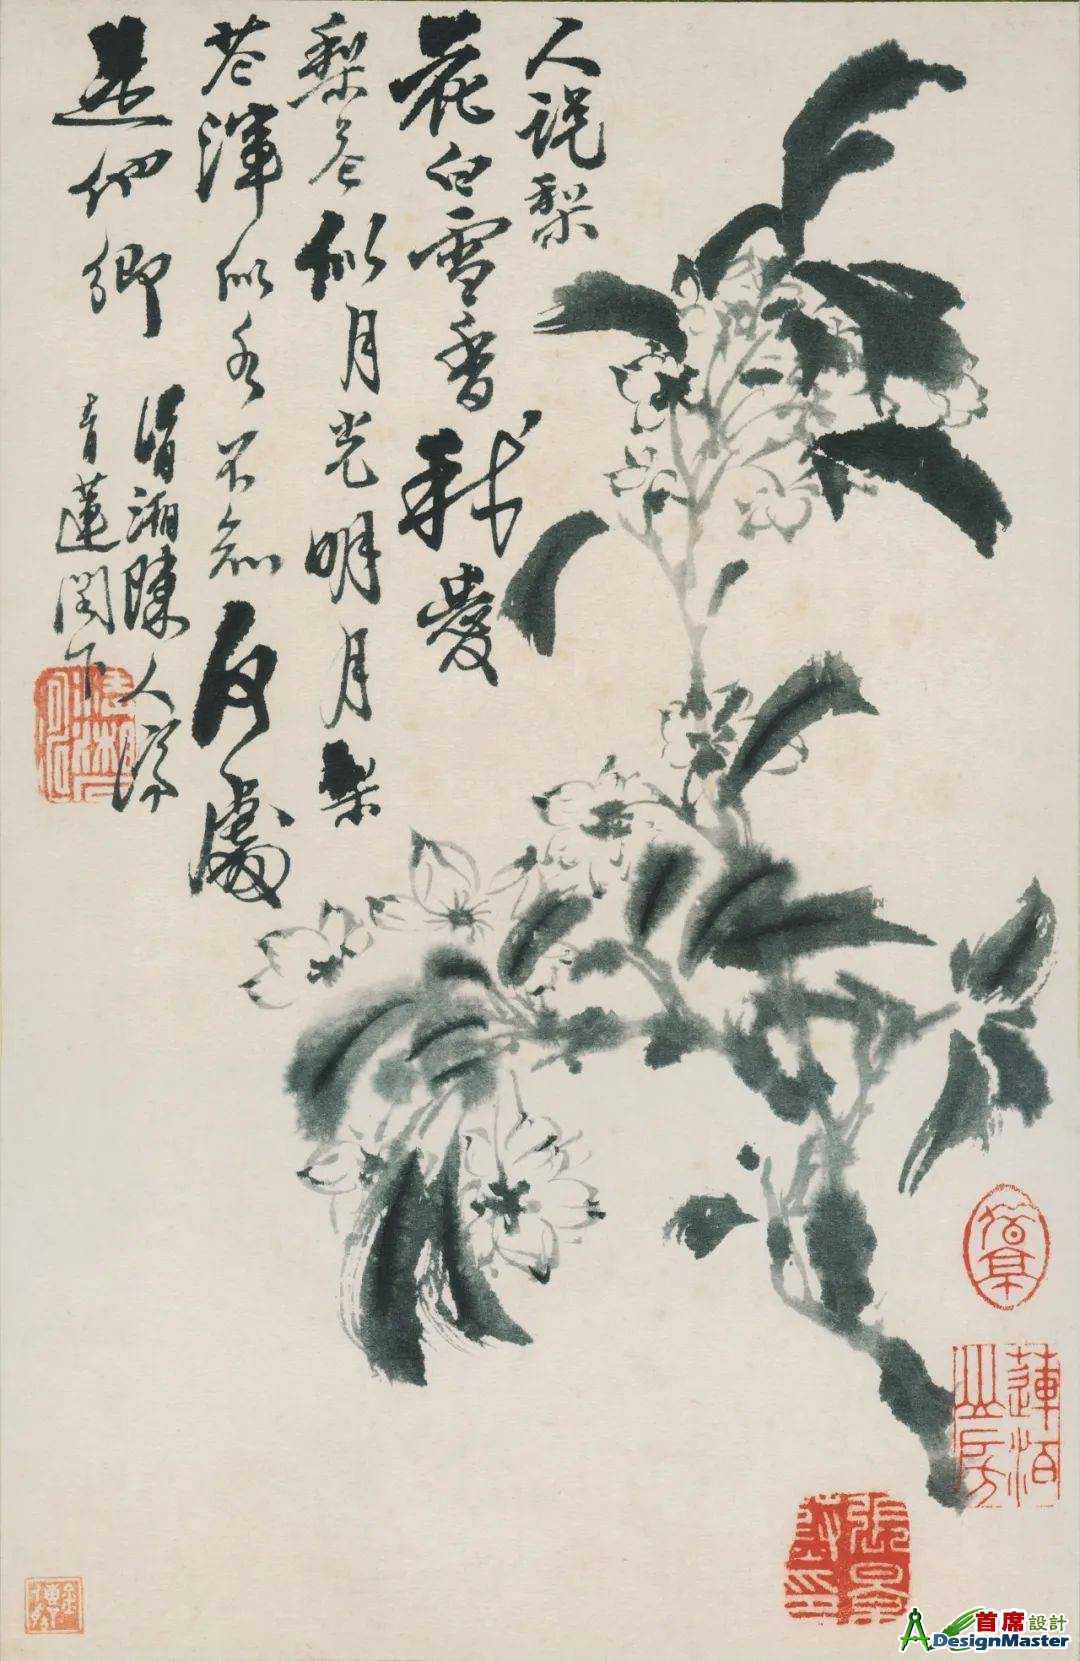 人說梨
花白雪香我愛
梨花似月光明月梨
花渾似水不知何處
是他鄉
清湘陳人濟
青蓮閣下
蓮泊
山房
首席設計
ADesignMaster